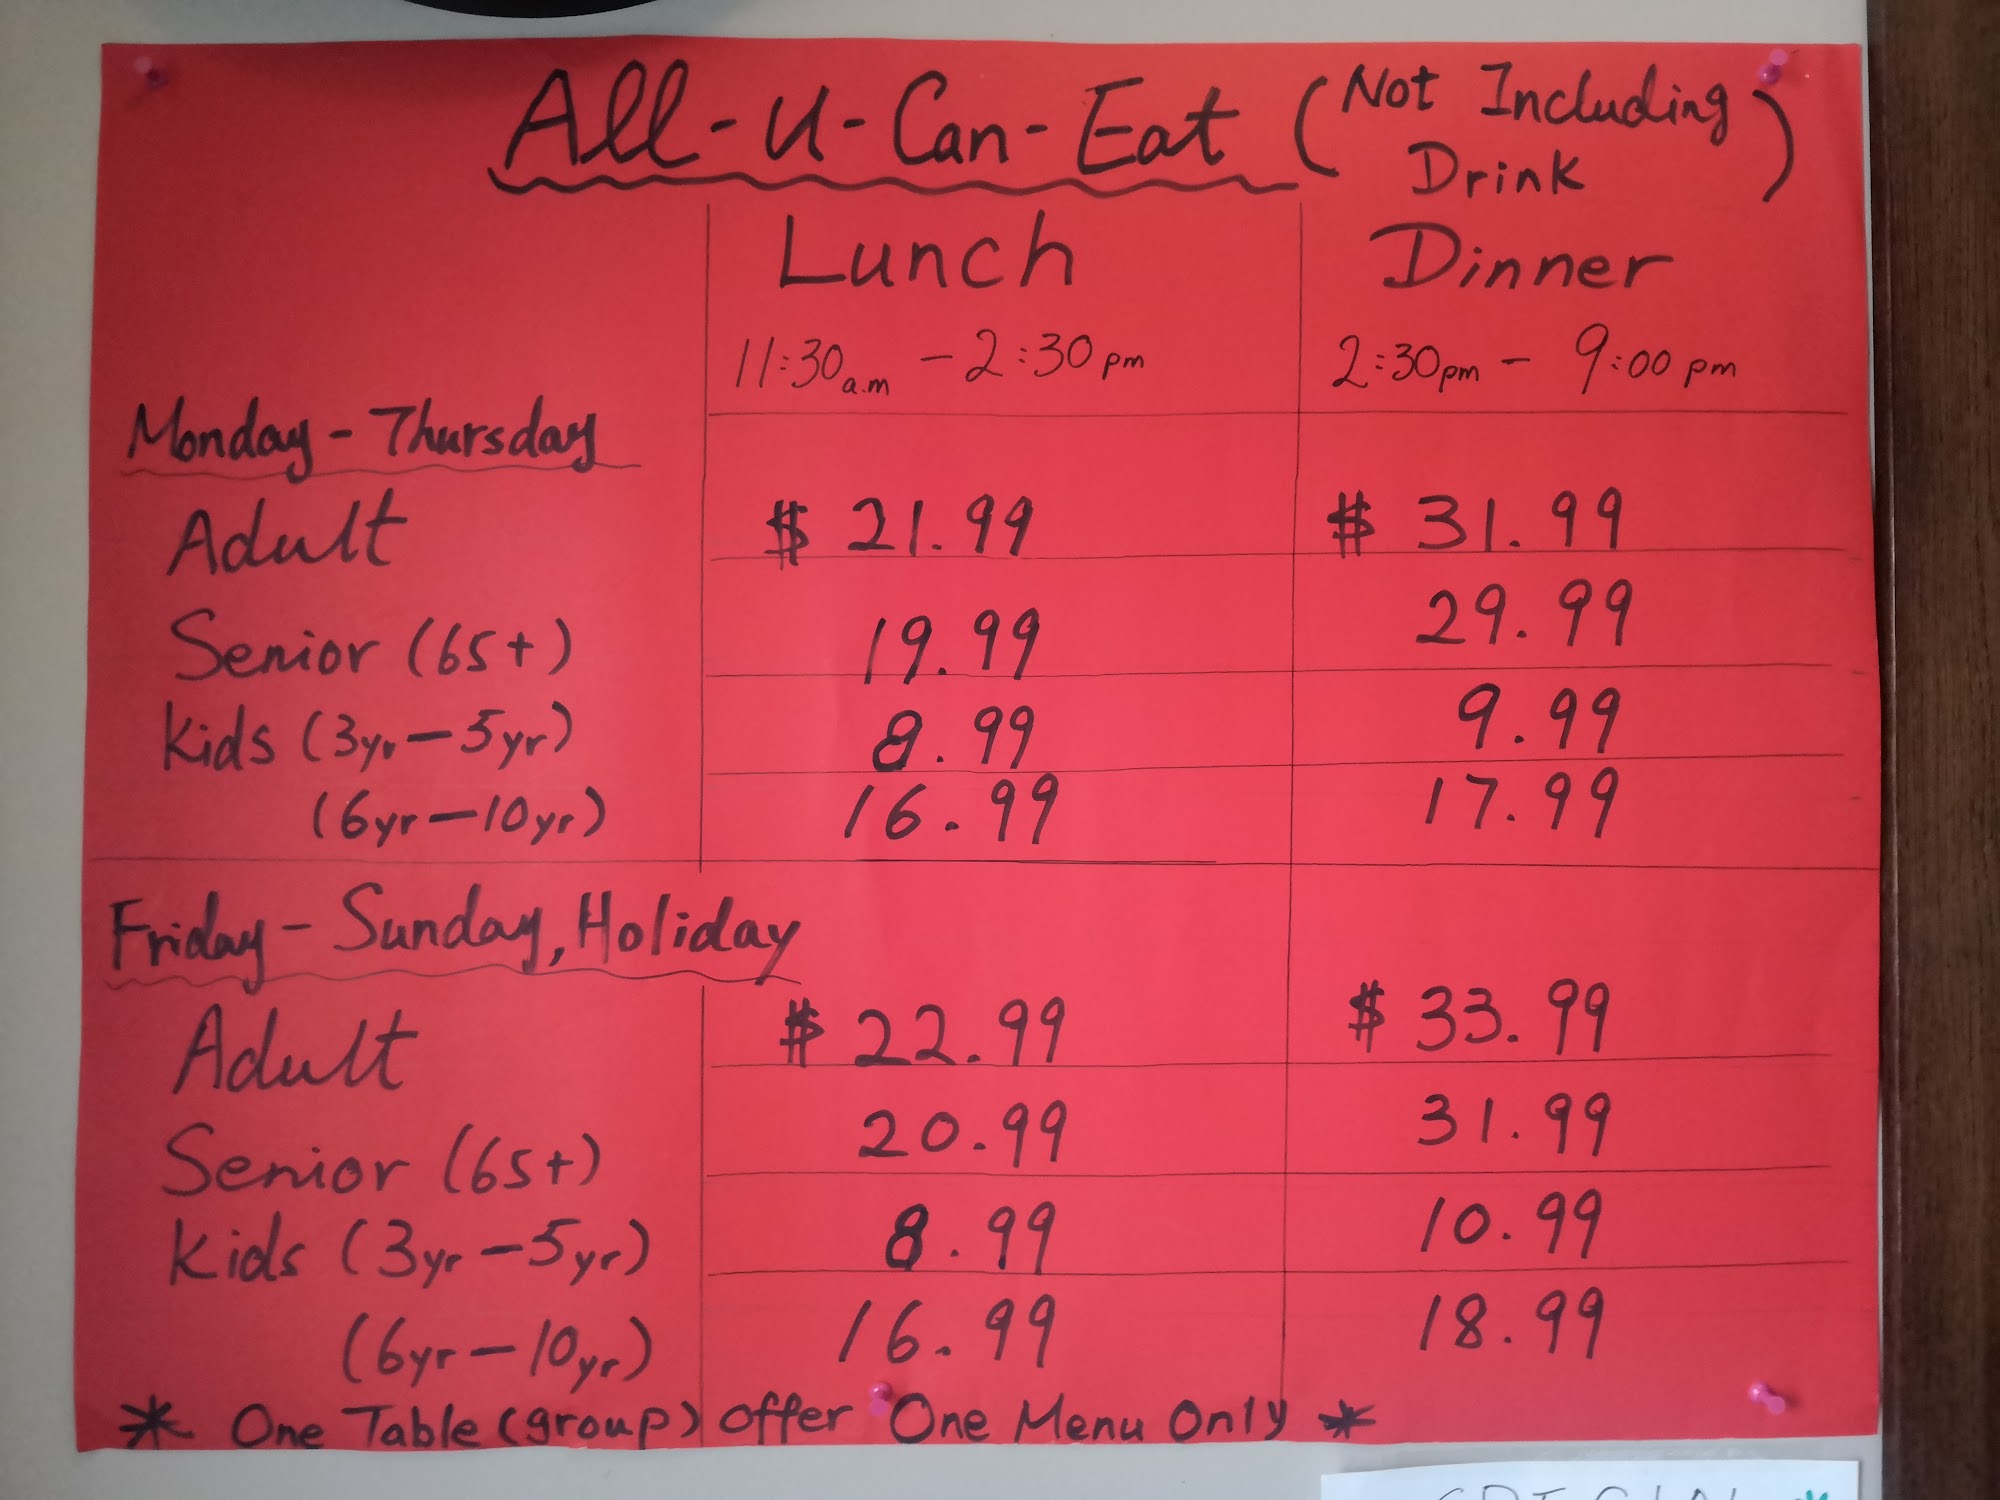 All-U-Can-Eat (Not Including Drink)
Lunch Dinner
11:30a.m - 2:30pm 2:30pm - 9:00pm
Monday - Thursday
Adult $21.99 $31.99
Senior (65+) 19.99 29.99
Kids (3yr-5yr) 8.99 9.99
(6yr-10yr) 16.99 17.99
Friday - Sunday, Holiday
Adult $22.99 $33.99
Senior (65+) 20.99 31.99
Kids (3yr-5yr) 8.99 10.99
(6yr-10yr) 16.99 18.99
* One Table (group) offer One Menu Only *